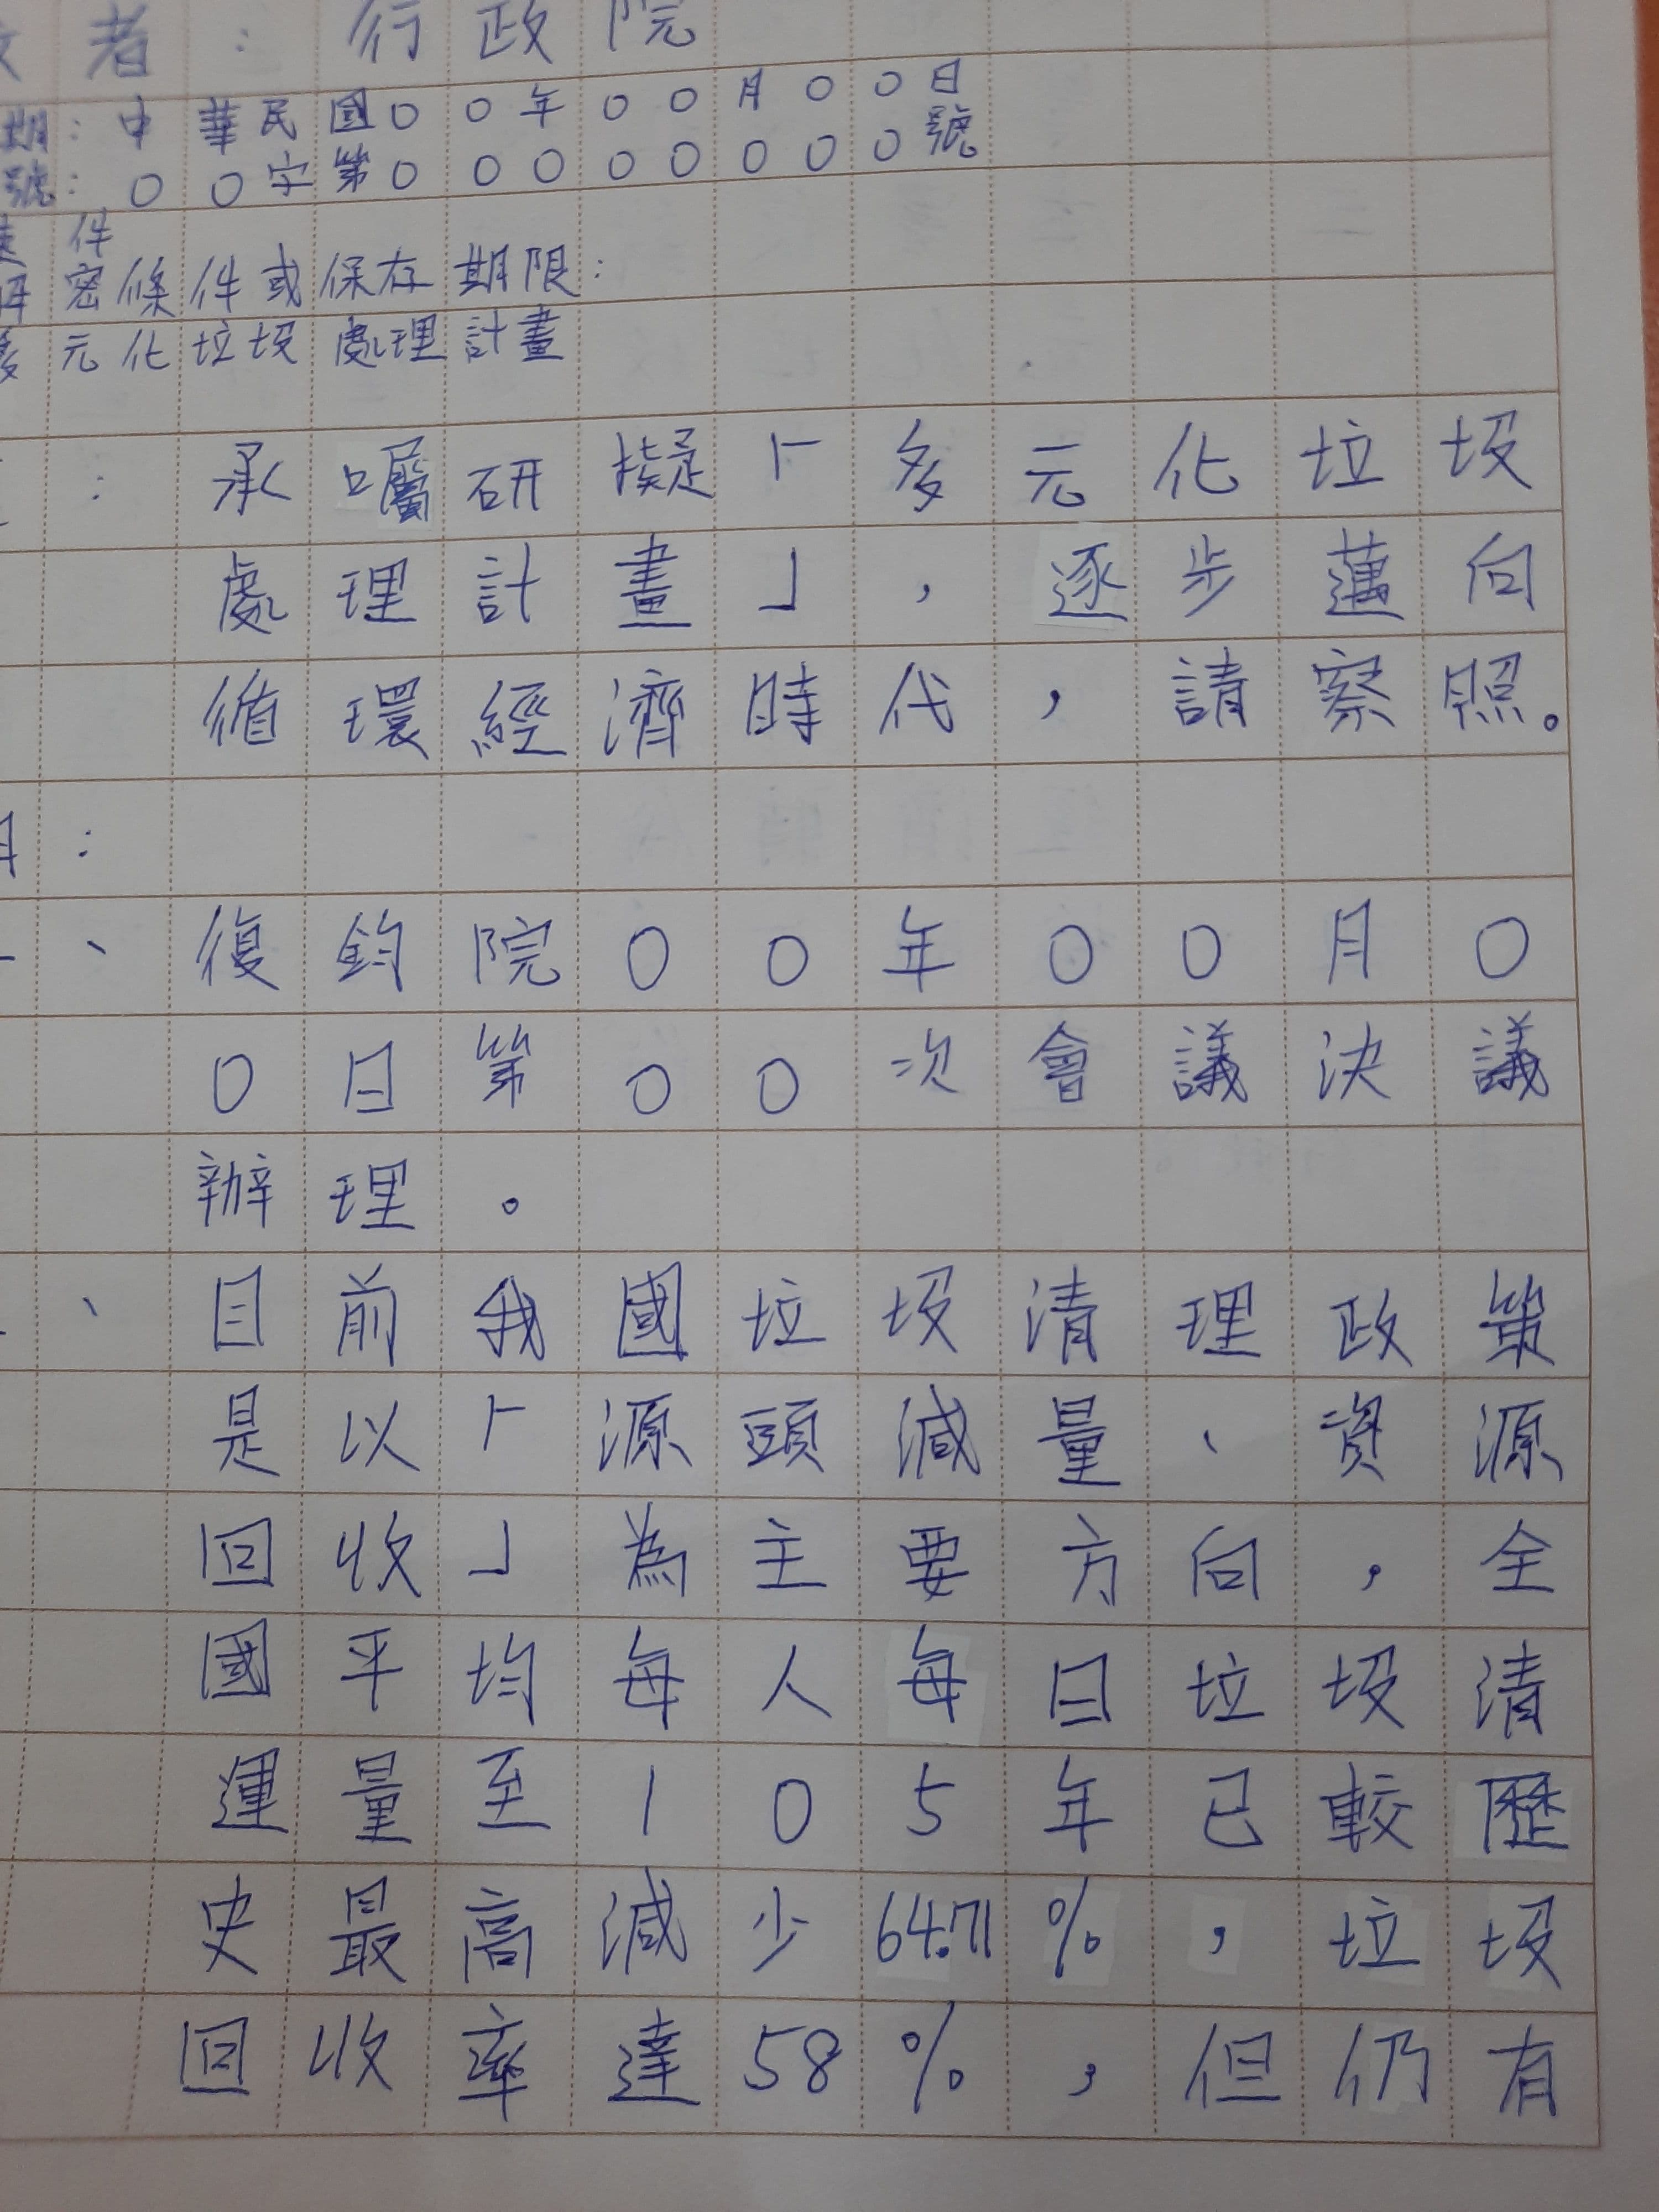 者：行政院
期：中華民國○○年○○月○○日
號：○○字第○○○○○○○○號
件
密條件或保存期限：
元化垃圾處理計畫
：承囑研擬「多元化垃圾
處理計畫」，逐步邁向
循環經濟時代，請察照。
：
、復鈞院○○年○○月○
○日第○○次會議決議
辦理。
、目前我國垃圾清理政策
是以「源頭減量、資源
回收」為主要方向，全
國平均每人每日垃圾清
運量至105年已較歷
史最高減少64.71%，垃圾
回收率達58%，但仍有